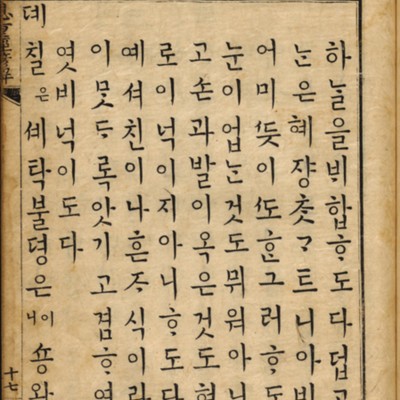 하ᄂᆞᆯ을비합ᄒᆞ도다덥고
ᄂᆞᆫ은혜쟝ᄎᆞᆺᄀᆞᄐᆞ니아비
어미ᄯᅳᆺ이ᄯᅩᄒᆞᆫ그러ᄒᆞ도
눈이업ᄂᆞᆫ것도뮈워아니
고손과발이옥은것도혐
로이넉이지아니ᄒᆞ도다
예셔친이나흔ᄌᆞ식이라
이못ᄃᆞ록앗기고겸ᄒᆞ여
엿비넉이도다
뎨칠은셰탁불뎡은
十七